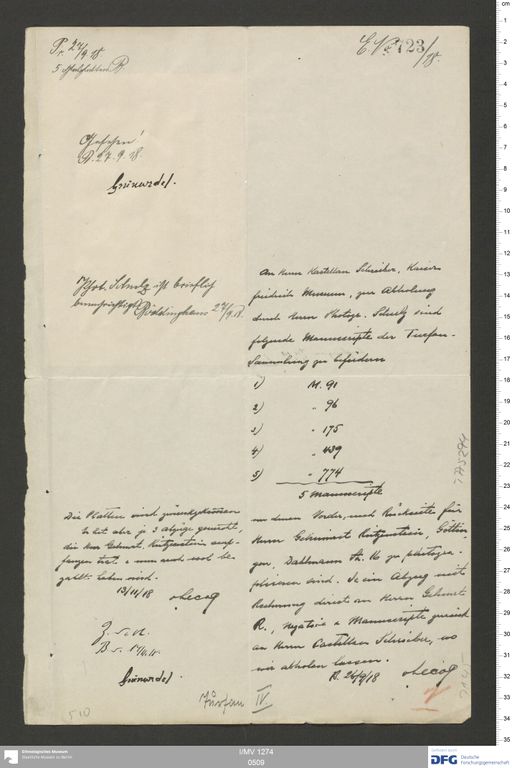 Pr. 27/9. 18.
E. No 723/18.
Gesehen!
B. 27. 9. 18.
Grünwedel.
Phot. Schulz ist brieflich
benachrichtigt 27/9. 18.
An Herrn Kastellan Schreiber, Kaiser
Friedrich Museum, zur Abholung
durch Herrn Photogr. Schulz sind
folgende Manuscripte der Turfan-
Sammlung zu befördern
1) M. 91
2) " 96
3) " 175
4) " 439
5) " 774
5 Manuscripte
von denen Vorder- und Rückseite für
Herrn Geheimrat Reitzenstein, Göttin-
gen, Dahlmann Str. zu photogra-
phieren sind. Je ein Abzug mit
Rechnung direct an Herrn Geheimrat
R., Negative u Manuscripte zurück
an Herrn Castellan Schreiber, wo
wir abholen lassen.
B. 26/9/18 v Lecoq
Die Platten sind zurückgekommen
hat aber je 3 Abzüge gemacht,
die Herr Geheimrat Reitzenstein emp-
fangen hat u nun auch wol be-
zahlt haben wird.
13/11/18 v Lecoq
Z. d. A.
Grünwedel.
Turfan IV.
I/MV 1274
0509
Ethnologisches Museum
Staatliche Museen zu Berlin
DFG
Deutsche
Forschungsgemeinschaft